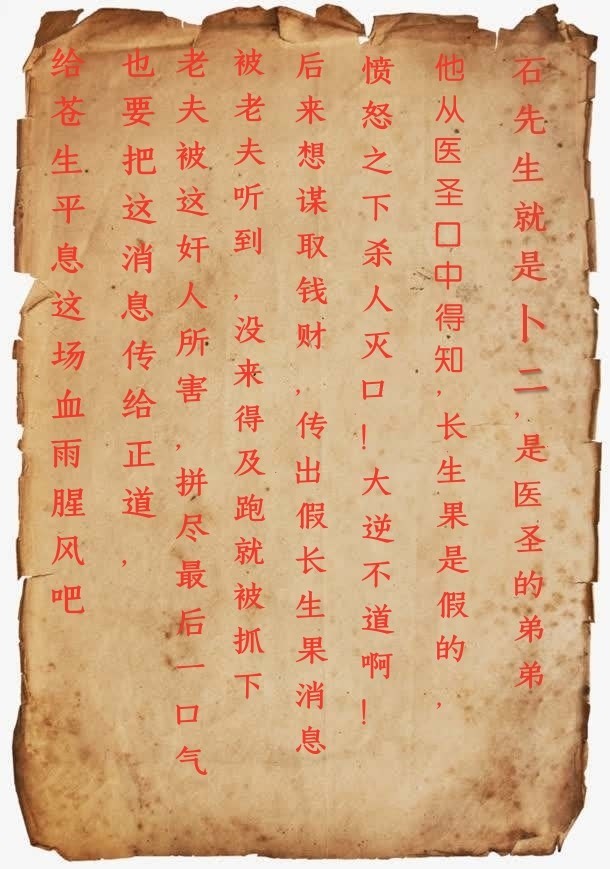 石先生就是卜二,是医圣的弟弟
他从医圣口中得知,长生果是假的,
愤怒之下杀人灭口!大逆不道啊!
后来想谋取钱财,传出假长生果消息
被老夫听到,没来得及跑就被抓下
老夫被这奸人所害,拼尽最后一口气
也要把这消息传给正道,
给苍生平息这场血雨腥风吧